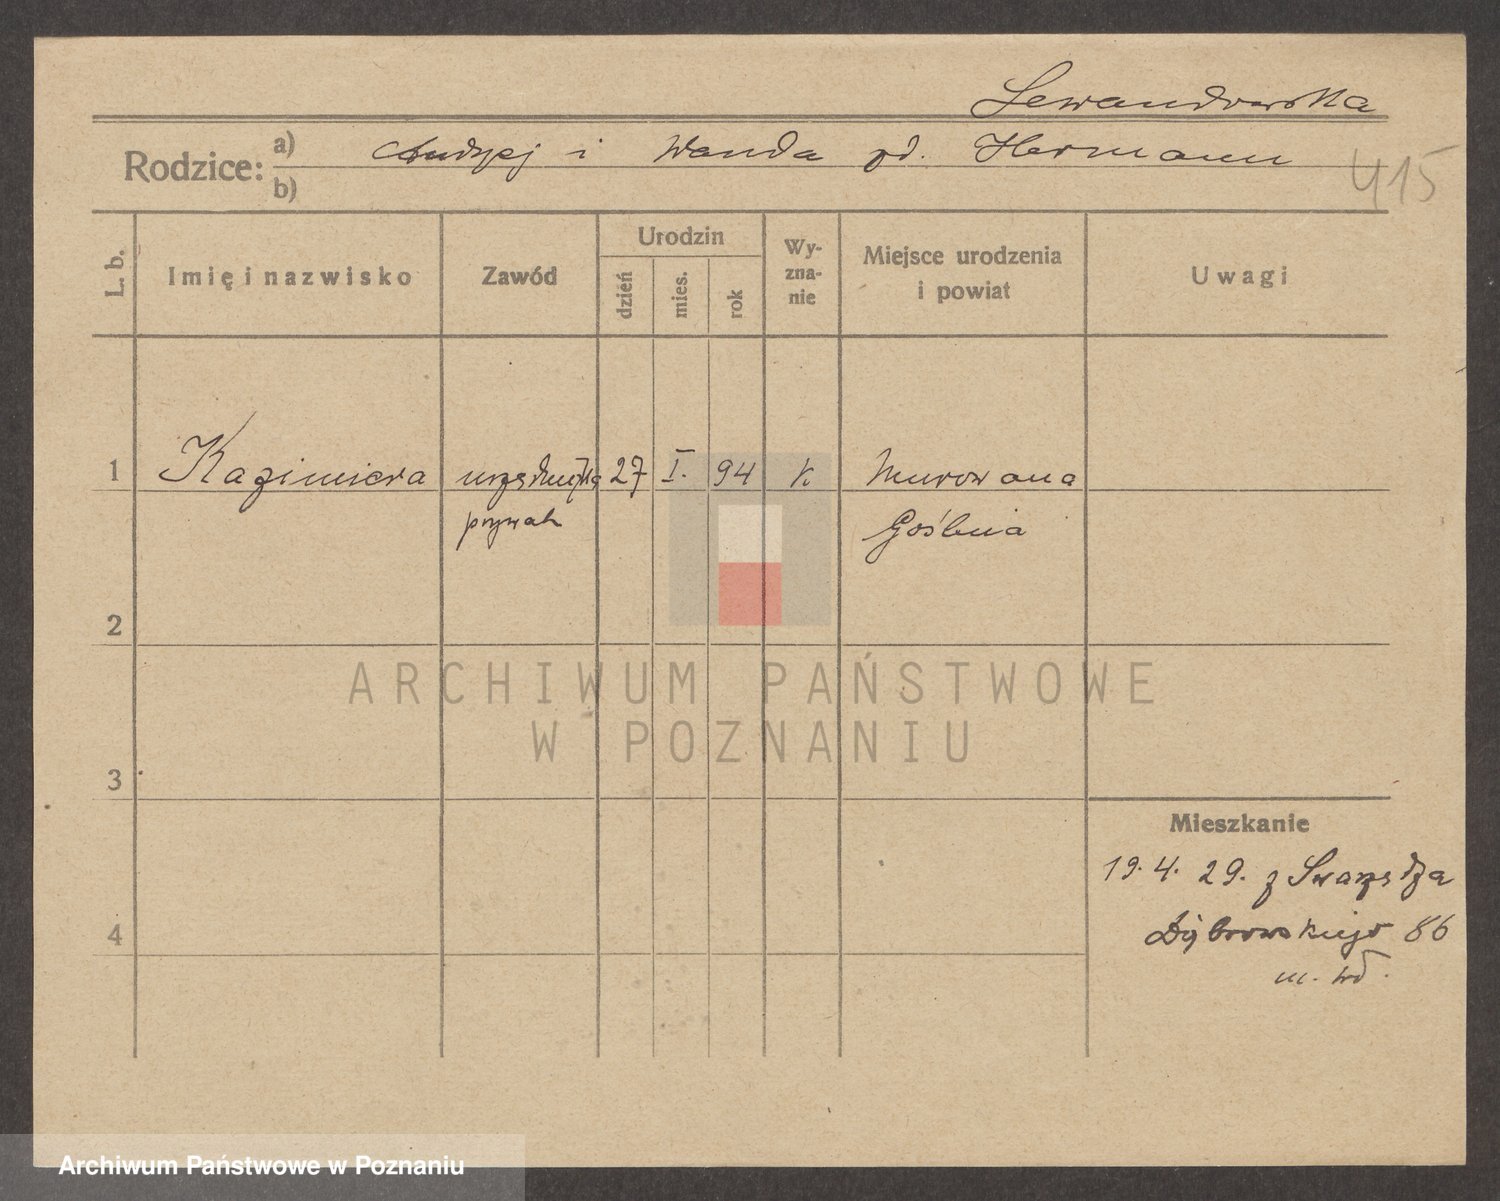 Lewandowska
Rodzice: a) Andrzej i Wanda zd. Hermann
b)
415
L. b.
Imię i nazwisko
Zawód
Urodzin
dzień
mies.
rok
Wy-
zna-
nie
Miejsce urodzenia
i powiat
Uwagi
1 Kazimiera urzędniczka 27 I. 94 k Murowana
prywatn Goślina
2
ARCHIWUM PAŃSTWOWE
W POZNANIU
3
Mieszkanie
19. 4. 29. z Swarzędza
4 Dąbrowskiego 86
m.
Archiwum Państwowe w Poznaniu